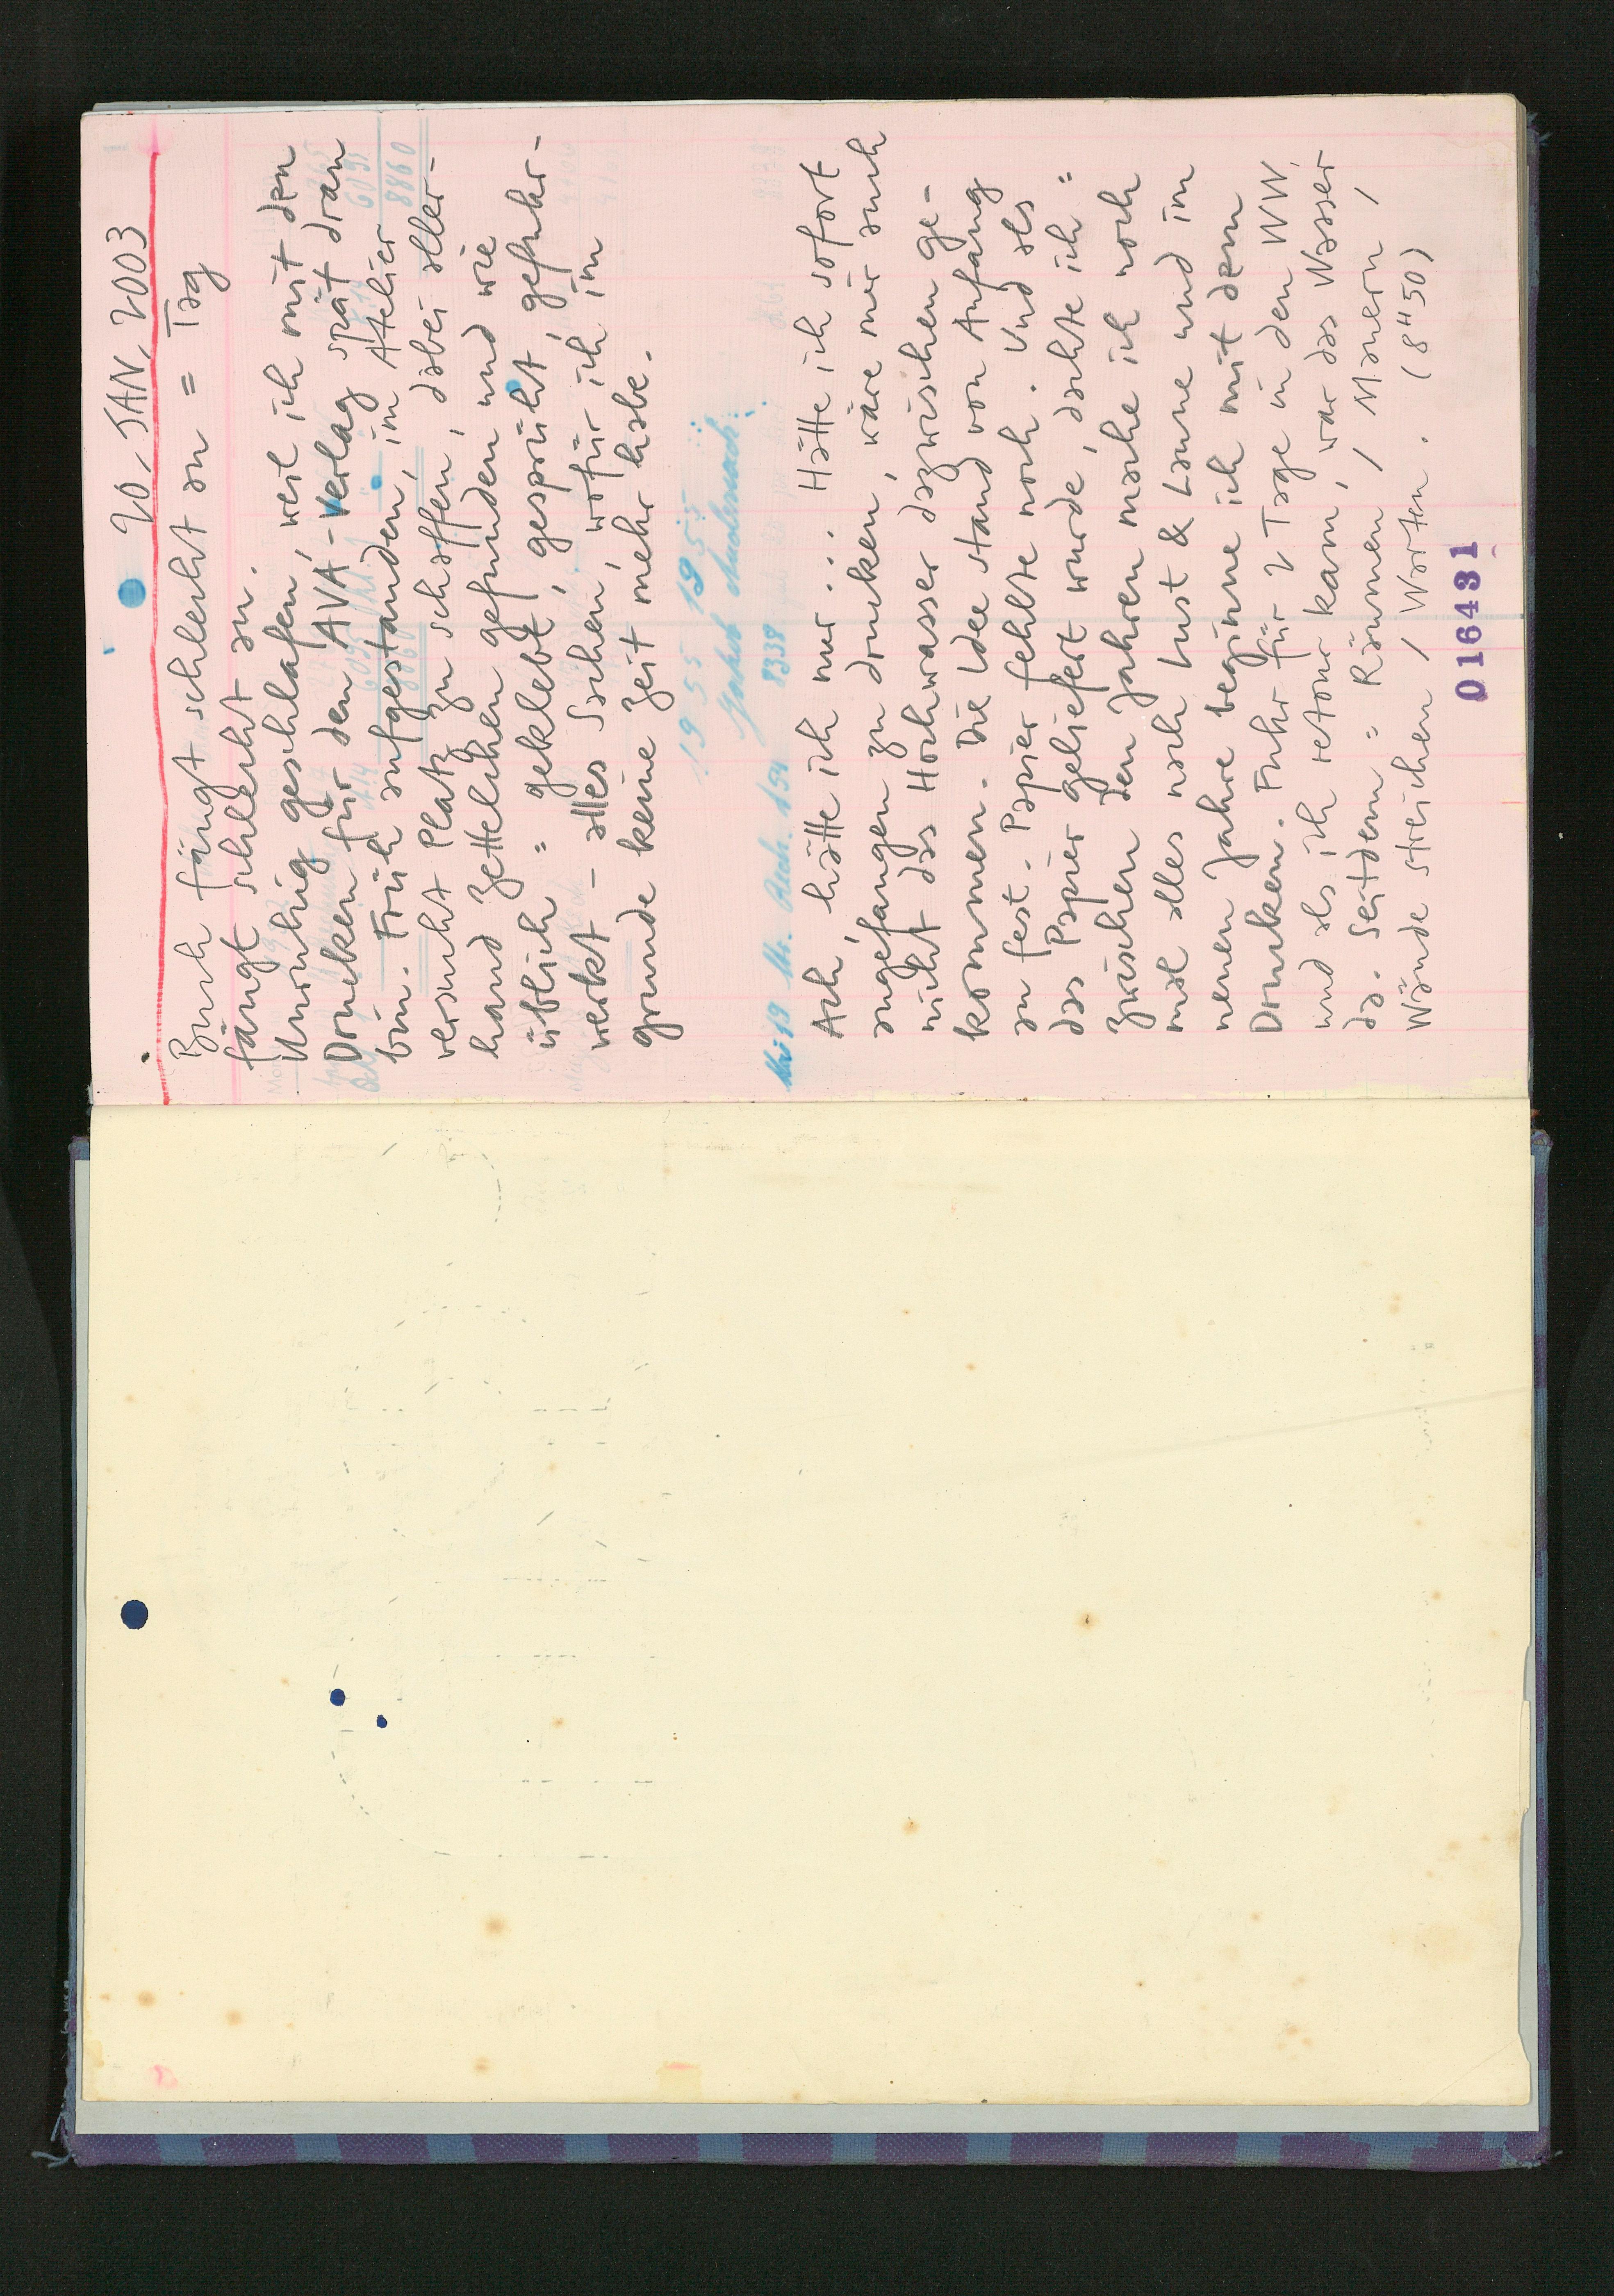 20. JAN. 2003
Buch fängt schlecht an = Tag
fängt schlecht an.
Unruhig geschlafen, weil ich mit den
Drucken für den AVA-Verlag spät dran
bin. Früh aufgestanden, im Atelier
versucht Platz zu schaffen, dabei aller-
hand Zettelchen gefunden und wie
üblich = geklebt, gesprüht, gefuhr-
werkt – alles Sachen, wofür ich im
Grunde keine Zeit mehr habe.
1955 1955
8339
Ach, hätte ich nur ... Hätte ich sofort
angefangen zu drucken, wäre mir auch
nicht das Hochwasser dazwischen ge-
kommen. Die Idee stand von Anfang
an fest. Papier fehlte noch. Und als
das Papier geliefert wurde, dachte ich =
zwischen den Jahren mache ich noch
mal alles nach Lust & Laune und im
neuen Jahre beginne ich mit dem
Drucken. Fuhr für 2 Tage in den WW,
und als ich retour kam, war das Wasser
da. Seitdem = Räumen / Mauern /
Wände streichen / Warten. (8"50)
016431